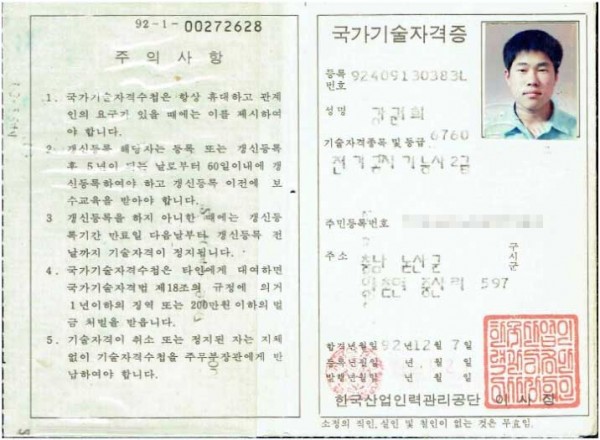 92-1-00272628
주 의 사 항
1. 국가기술자격수첩은 항상 휴대하고 관계
인의 요구가 있을 때에는 이를 제시하여
야 합니다.
2. 갱신등록 해당자는 등록 또는 갱신등록
후 5년이 되는 날로부터 60일이내에 갱
신등록하여야 하고 갱신등록 이전에 보
수교육을 받아야 합니다.
3 갱신등록을 하지 아니한 때에는 갱신등
록기간 만료일 다음날부터 갱신등록 전
날까지 기술자격이 정지됩니다.
4. 국가기술자격수첩은 타인에게 대여하면
국가기술자격법 제18조의 규정에 의거
1년이하의 징역 또는 200만원이하의 벌
금 처벌을 받읍니다.
5. 기술자격이 취소 또는 정지된 자는 지체
없이 기술자격수첩을 주무부장관에게 반
납하여야 합니다.
국가기술자격증
등록
번호 92409130383L
성명
기술자격종목 및 등급 6760
전기공사기능사2급
주민등록번호
주소
구
시
군
충남 논산군
597
합격년월일 92년 12월 7일
등록년월일 년 월 일
발행년월일 년 월 일
한국산업인력관리공단 이사장
소정의 직인, 실인 및 철인이 없는 것은 무효임.